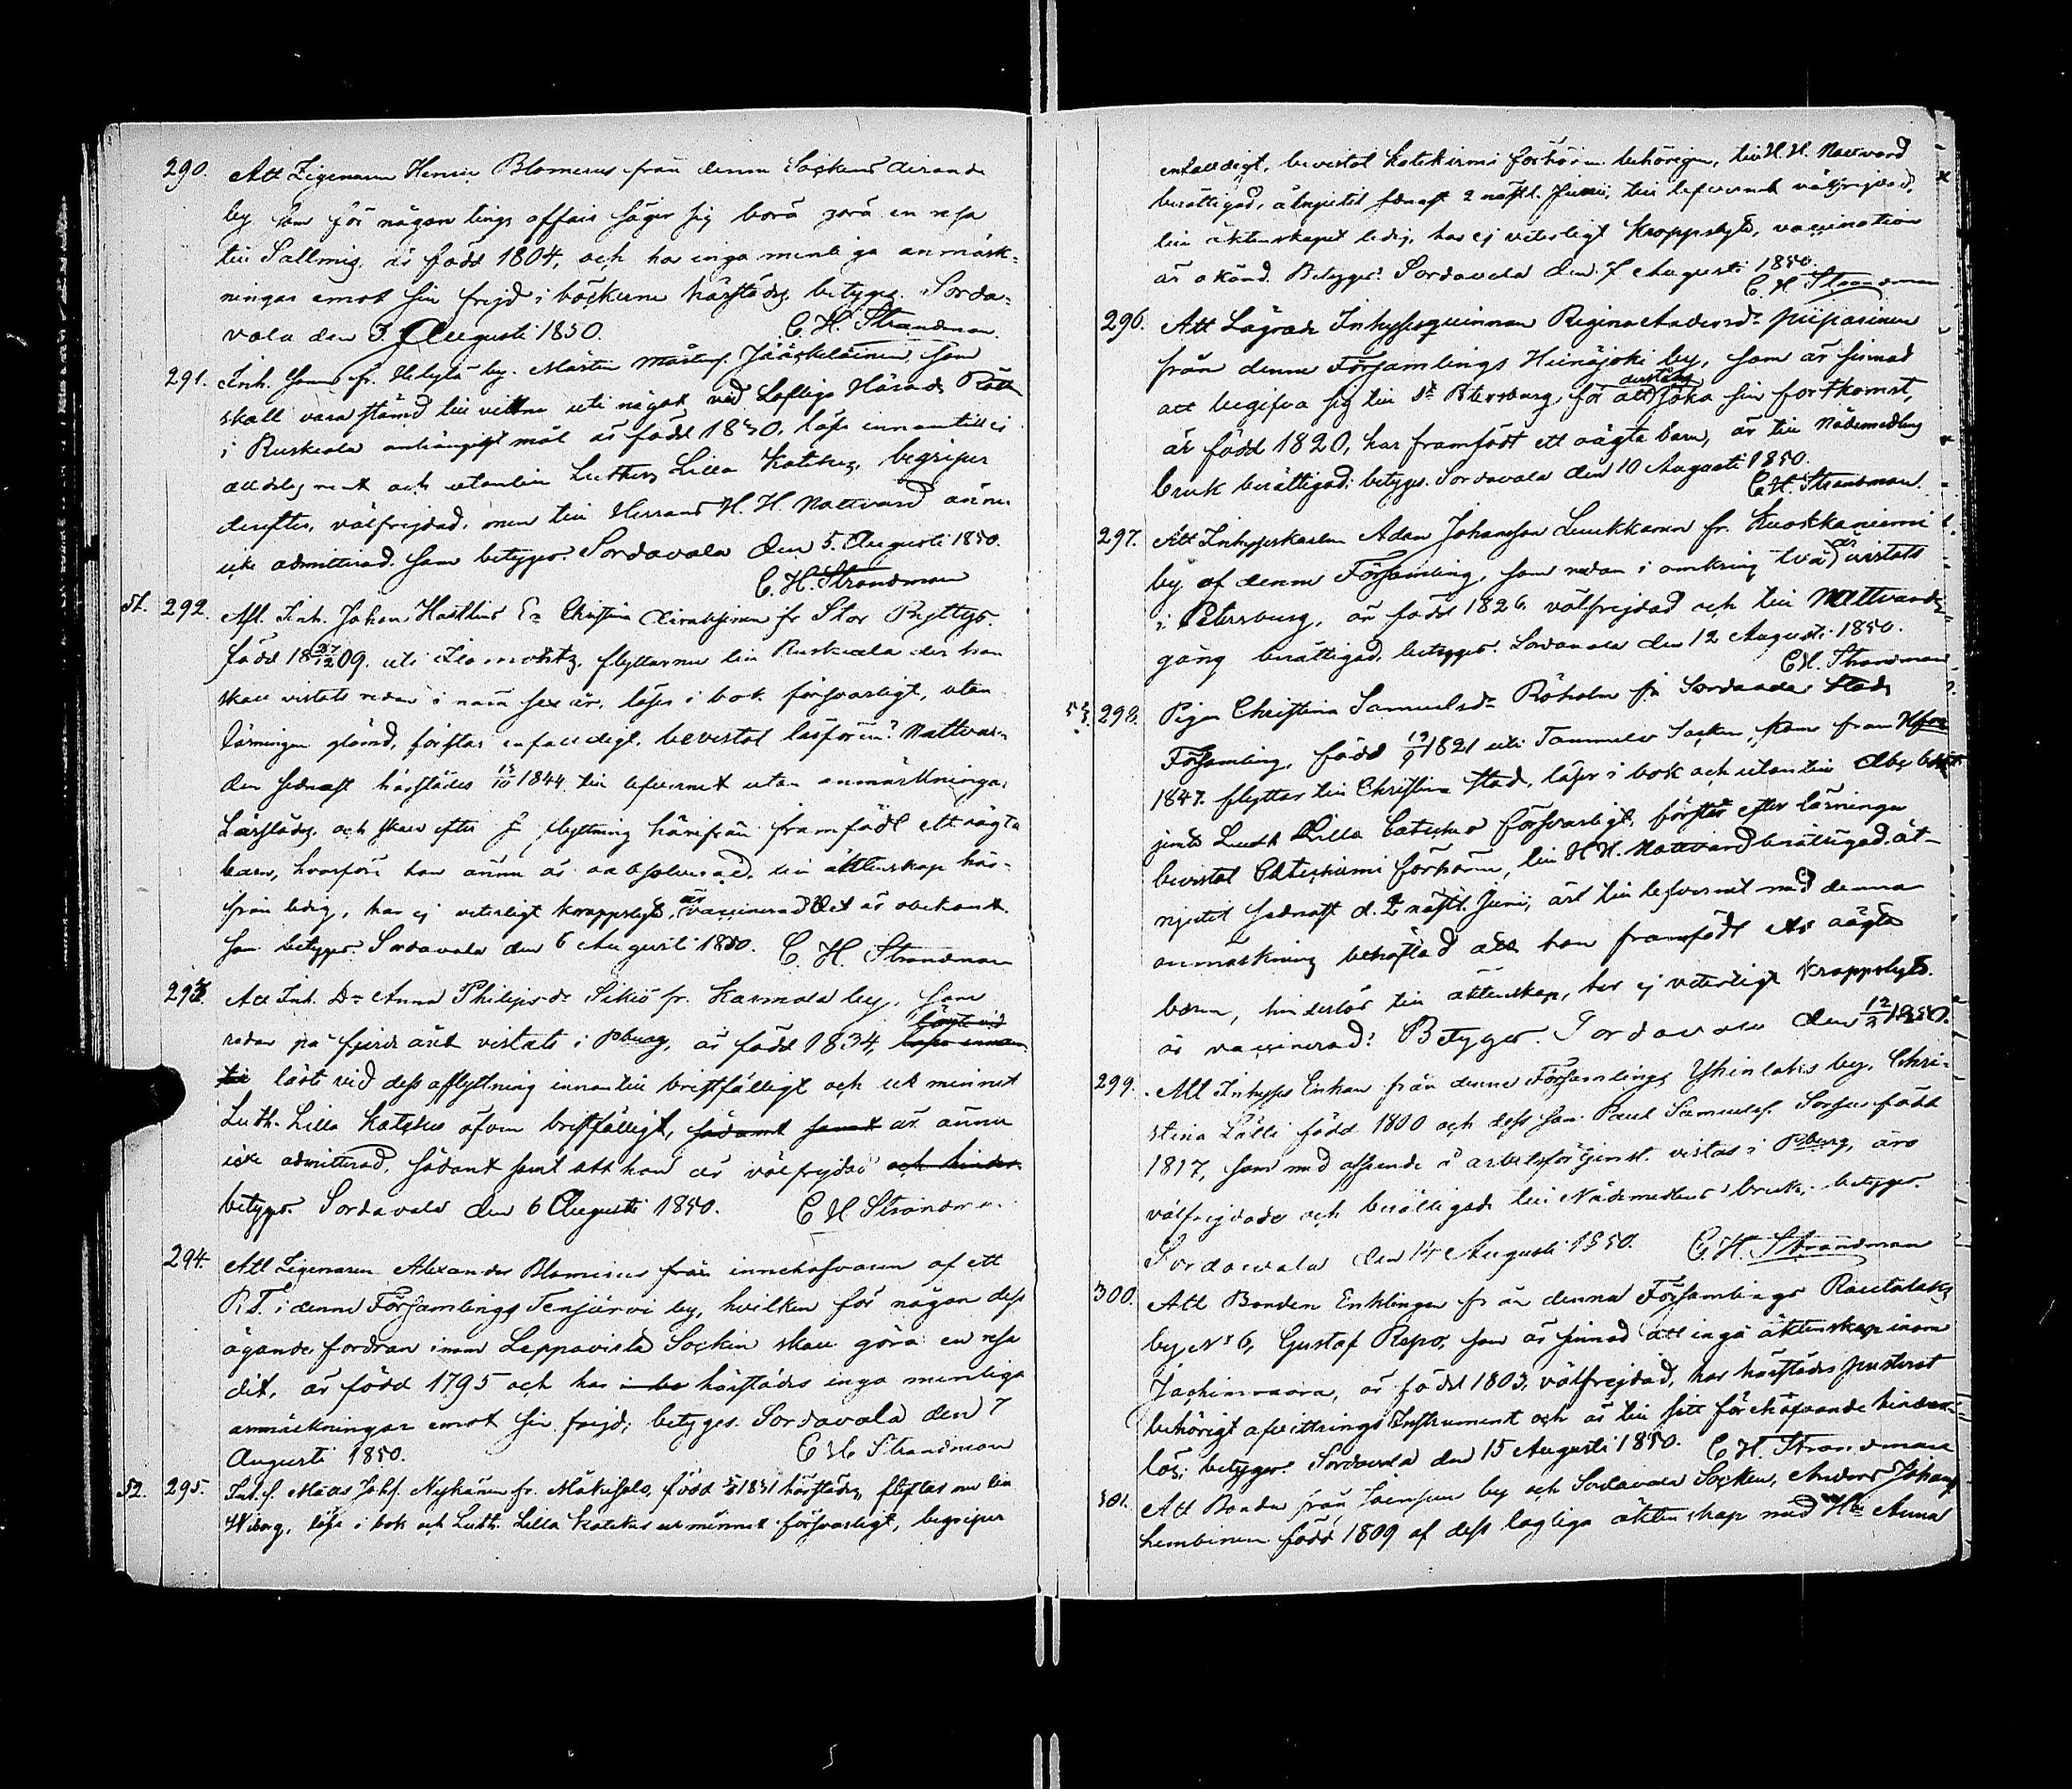 290. Att Zigenaren Henric Blomerus från denna Sockens Airanda
by som för någon tings affair säger sig böra göra en resa
till Sallmis, är född 1804, och har inga menliga anmärk-
ningar emot sin frejd i böckerne härstädes, betygas. Sorda-
vala den 3 Augusti 1850. C. H. Strandman
291. Inh. Son fr. Helylä by. Mårten Mårtens. Jääskeläinen som
skall vara stämd till vittne uti något vid Lofliga Härads Rätten
i Ruskeala anhängigt mål är född 1830, läser innantill ei
alldeles rent och utantill Luthers Lilla Kateches, begriper
derefter, välfrejdad, men till Herrans H. H. Nattvard ännu
icke admitterad. Som betygas Sordavala den 5. Augusti 1850.
C. H. Strandman
51. 292. Afl. Inh. Johan Hosthus Ea Christina fr Stor Ryttys.
född 18 27/12 09. uti flyttar nu till Ruskeala der hon
skall vistats redan i nära sex år, läser i bok försvarligt, utan
läsningen glömd, förstår enfaldigt, bevistat läsförhör? Nattvar-
den sednast härstädes 13/10 1844 till lefvernet utan anmärkningar
härstädes, och skall efter sin flyttning härifrån framfödt ett oägta
barn, hvarföre hon ännu är oabsolverad, till äktenskap här-
ifrån ledig, har ej veterligt kroppslyte, är vaccinerad? det är obekant.
Som betygas Sordavala den 6 Augusti 1850. C. H. Strandman
293. Att Inh. Dr Anna Philips dr Sikiö fr. Karmala by, som
redan på fjerde året vistats i Pburg, är född 1834, läste vid läser innan
till läste vid dess afflyttning innantill bristfälligt och ur minnet
Luth. Lilla Kateches äfven bristfälligt, sådant samt är ännu
icke admitterad, sådant samt att hon är välfrejdad och hinder
betygas Sordavala den 6 Augusti 1850. C H Strandman
294. Att Zigenaren Alexander Blomerus från innehafvaren af ett
P. T. i denna Församlings Tenjärvi by, hvilken för någon dess
ägande fordran inom Leppävirta Socken skall göra en resa
dit, är född 1795 och har härstädes inga menliga
anmärkningar emot sin frejd; betygas. Sordavala den 7
Augusti 1850. C H Strandman
52. 295. Inh. S. Matts Johs. Nykänen fr. Mäkisalo, född 1831 härstädes, flyttar nu till
Wiborg, läser i bok och Luth. Lilla Kateches ur minnet försvarligt, begriper
enfaldigt, bevistat Katekismi förhören behörigen, till H. H. Nattvard
berättigad, åtnjutit sednast 2 nästl. Junii, till lefvernet välfrejdad,
till äktenskapet ledig, har ej veterligt Kroppslyte, vaccination
är okänd. Betygas: Sordavala den 7 Augusti 1850.
C. H. Strandman
296. Att Lägrade Inhysesqvinnan Regina Andersdr Piiparinen
från denna Församlings Heinäjoki by, som är sinnad
att begifva sig till St Petersburg för att derstädes söka sin fortkomst,
är född 1820, har framfödt ett oägta barn, är till Nådemedlens
bruk berättigad; betygas. Sordavala den 10 Augusti 1850.
C. H. Strandman.
297. Att Inhyseskarlen Adam Johansson Luukkanen fr. Kuokkaniemi
by af denna Församling, som redan i omkring två år vistats
i Petersburg, är född 1826. välfrejdad och till Nattvards-
gång berättigad, betygas. Sordavala den 12 Augusti 1850.
C H. Strandman
53. 298. Pigan Christina Samuelsdr Röholm fr Sordavala Stads
Församling, född 19/9 1821 uti Tammela Socken, kom från Hfors
1847. flyttar till Christina stad, läser i bok och utantill Abc bok
jemte Luth Lilla Cateches försvarligt, förstår efter läsningen
bevistat Catechismi förhören, till H H. Nattvard berättigad, åt-
njutit sednast d. 2 nästl. Juni, är till lefvernet med denna
anmärkning behäftad att hon framfödt ett oägta
barn, hinderlös till äktenskap, har ej veterligt Kroppslyte.
är vaccinerad? Betygas. Sordavala den 12/8 1850.
299. Att Inhyses Enkan från denna Församlings Yhinlaks by, Chri-
stina Lälli född 1800 och dess son Paul Samuels. Sorsa född
1817, som med afseende å arbetsförtjenst vistas i Pburg, äro
välfrejdade och berättigade till Nådemedlens bruk; betygas.
Sordavala den 14 Augusti 1850. C. H. Strandman
300. Att Bonden Enklingen från denna Församlings Rautalaks
by No 6, Gustaf Repo, som är sinnad att ingå äktenskap inom
Jackimvaara, är född 1803, välfrejdad, har härstädes presterat
behörigt afvittrings Instrument och är till sitt förehafvande hinder-
lös; betygas. Sordavala den 15 Augusti 1850. C H. Strandman
301. Att Bonden från by och Sordavala Socken, Anders Johans.
Lembinen född 1809 af dess lagliga äktenskap med Hu Anna